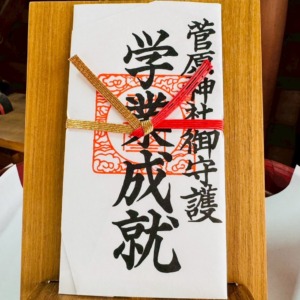 菅原神社御守護
学業成就